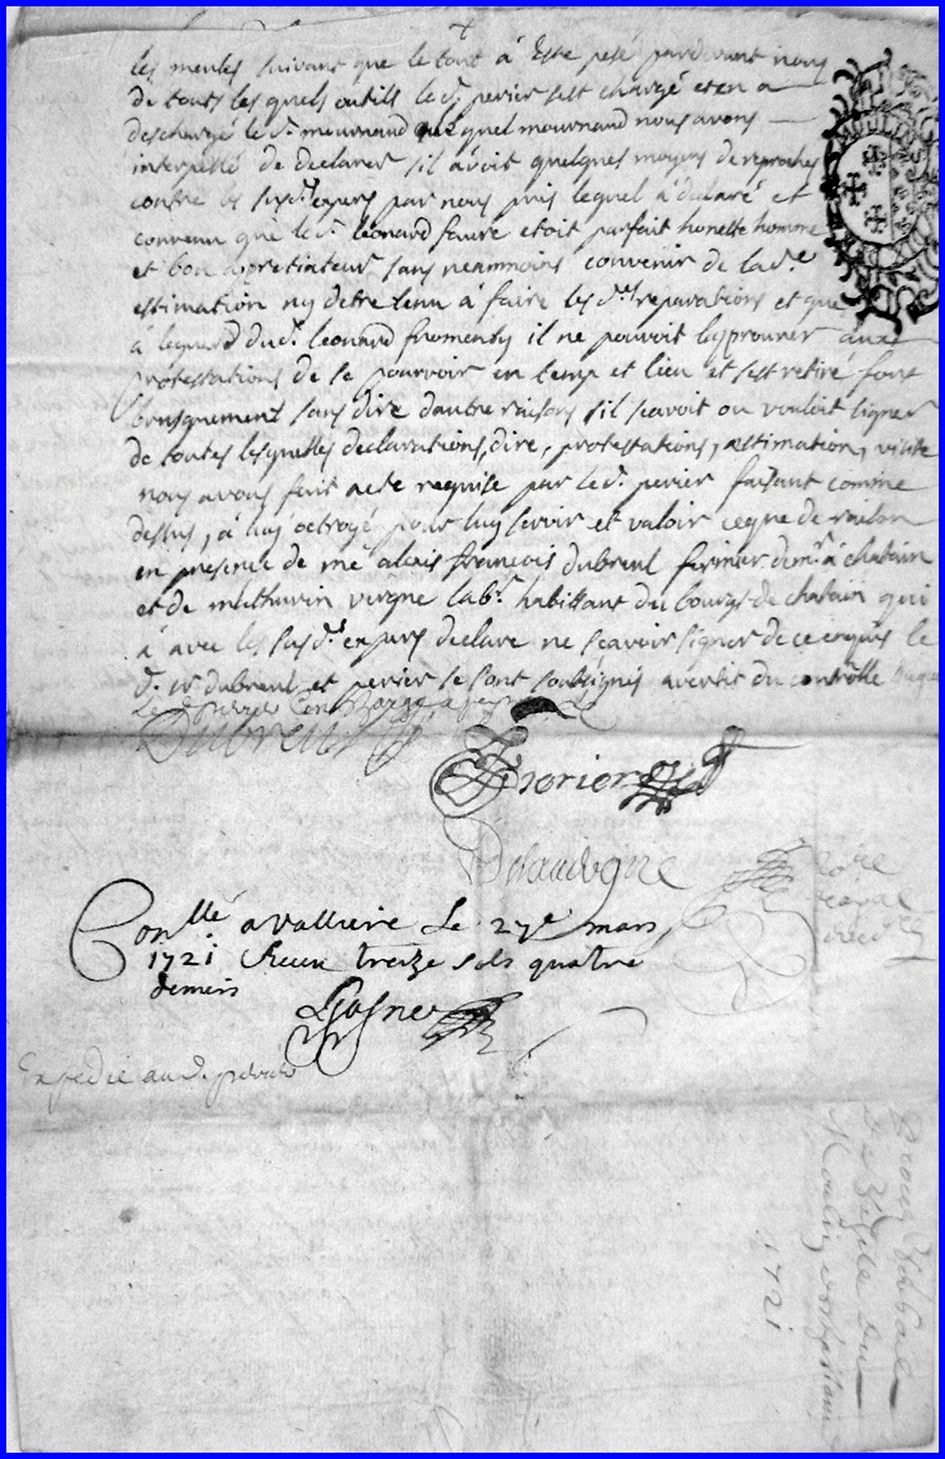 les meules suivant que le tout à Esté pesé pardevant nous
de touts les quels outils led. perier sest chargé et en a
deschargé led. meurnaud quel meurnaud nous avons
interpellé de declarer sil avoit quelques moyens de reproches
contre les susd. expers par nous pris lequel à declaré et
convenu que led. léonard faure etoit parfait honeste homme
et bon apretiateur sans neanmoins convenir de lad.e
estimation ny detre tenu à faire les d.es reparations et que
à legeard dud. leonard fromenty il ne pouvoit lesprouver aux
protestations de se pourvoir en temp et lieu et sest retiré fort
brusquement sans dire dautre raisons sil scavoit ou vouloit signer
de toutes lesquelles declarations, dire, protestations, estimation, visite
nous avons fait acte requise par led. perier faisant comme
dessus, à luy octroyé pour luy servir et valoir ceque de raison
en presence de me alexis françois dubreul fermier dem.t à chatain
et de mathurin vergne lab.r habittant du bourg de chatain qui
à avec les susd.s expers declare ne sçavoir signer de ce enquis le
d. sr dubreul et perier se sont soubsignés avertis du controlle
Dubreul
Controllé a valliere Le 27e mars
1721 Receu treize sols quatre
deniers
Expedié aud. perier
1721